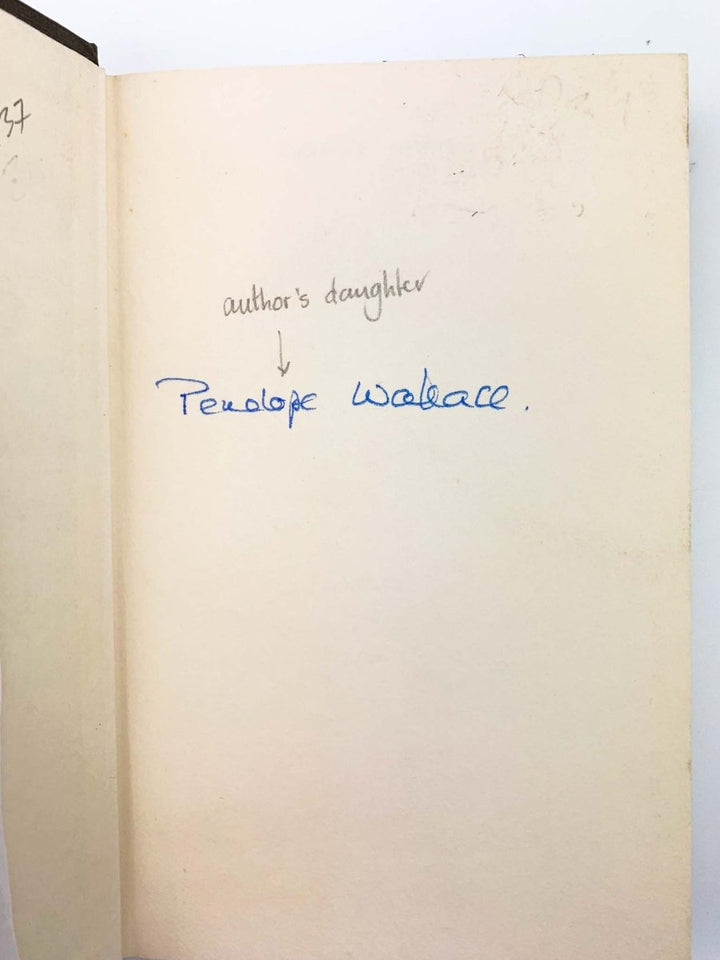 37
author's daughter
↓
Penelope Wallace.